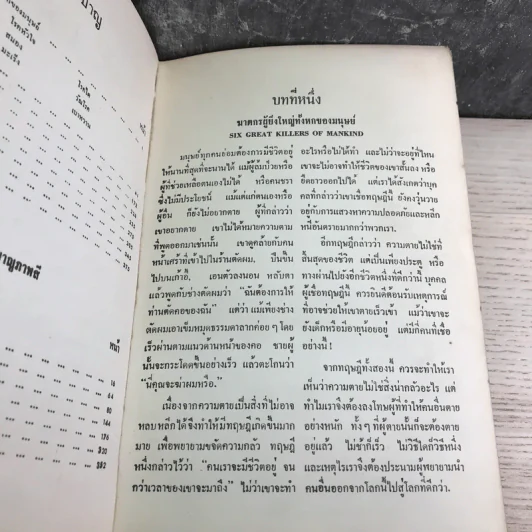 บาญ
ของมนุษย์
โรคหัวใจ
สมอง
มะเร็ง
โรคไต
วัณโรค
เบาหวาน
หน้า
บาญภาพสี
หน้า
16
64
80
144
176
320
352
บทที่หนึ่ง
ฆาตกรผู้ยิ่งใหญ่ทั้งหกของมนุษย์
SIX GREAT KILLERS OF MANKIND
มนุษย์ทุกคนย่อมต้องการมีชีวิตอยู่
ให้นานที่สุดที่จะนานได้ แม้ผู้ล้มป่วยหรือ
ผู้ที่ช่วยเหลือตนเองไม่ได้ หรือคนชรา
ซึ่งไม่มีประโยชน์ แม้แต่แก่ตนเองหรือ
ผู้อื่น ก็ยังไม่อยากตาย ผู้ที่กล่าวว่า
เขาอยากตาย เขาไม่ได้หมายความตาม
ที่พูดออกมาเช่นนั้น เขาดูคล้ายกับคน
หน้าเศร้าที่เข้าไปในร้านตัดผม, ปีนขึ้น
ไปบนเก้าอี้, เอนตัวลงนอน หลับตา
แล้วพูดกับช่างตัดผมว่า "ฉันต้องการให้
ท่านตัดคอของฉัน" แต่ว่า แม้เพียงช่าง
ตัดผมเอาเข็มหมุดธรรมดาลากค่อย ๆ โดย
เร็วผ่านตามแนวด้านหน้าของคอ ชายผู้
นั้นจะกระโดดขึ้นอย่างเร็ว แล้วตะโกนว่า
"นี่คุณจะฆาผมหรือ".
เนื่องจากความตายเป็นสิ่งที่ไม่อาจ
หลบหลีกได้จึงทำให้มีทฤษฎีเกิดขึ้นมาก
มาย เพื่อพยายามขจัดความกลัว ทฤษฎี
หนึ่งกล่าวไว้ว่า "คนเราจะมีชีวิตอยู่ จน
กว่าเวลาของเขาจะมาถึง" ไม่ว่าเขาจะทำ
อะไรหรือไม่ได้ทำ และไม่ว่าจะอยู่ที่ไหน
เขาจะไม่อาจทำให้ชีวิตของเขาสั้นลง หรือ
ยืดยาวออกไปได้ แต่เราได้สังเกตว่าบุค
คลที่กล่าวว่าเขาเชื่อทฤษฎีนี้ ยังคงวุ่นวาย
อยู่กับการแสวงหาความปลอดภัยและหลีก
หนีอันตรายมากกว่าพวกเรา.
อีกทฤษฎีกล่าวว่า ความตายไม่ใช่ที่
สิ้นสุดของชีวิต แต่เป็นเพียงประตู หรือ
ทางผ่านไปยังอีกชีวิตหนึ่งที่ดีกว่านี้ บุคคล
ผู้เชื่อทฤษฎีนี้ ควรยินดีต้อนรับเหตุการณ์
ที่อาจช่วยให้เขาตายเร็วเข้า แม้ว่าเขาจะ
ยังเด็กหรือมีอายุน้อยอยู่ แต่มีกี่คนที่เชื่อ
อย่างนี้!
จากทฤษฎีทั้งสองนี้ ควรจะทำให้เรา
เห็นว่าความตายไม่ใช่สิ่งน่ากลัวอะไร แต่
ทำไมเราจึงต้องลงโทษผู้ที่ทำให้คนอื่นตาย
อย่างหนัก ทั้งๆ ที่ผู้ตายนั้นก็จะต้องตาย
อยู่แล้ว ไม่ช้าก็เร็ว ไม่วิธีใดก็วิธีหนึ่ง
และเหตุไรเราจึงต้องประณามผู้พยายามนำ
คนอื่นออกจากโลกนี้ไปสู่โลกที่ดีกว่า.